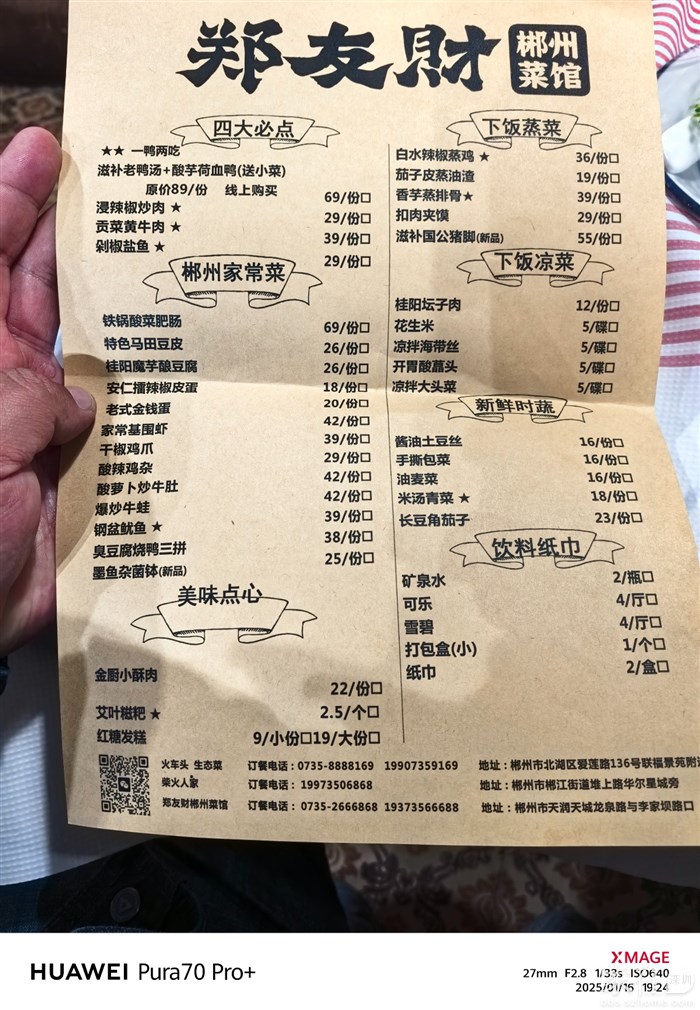 郑友財
郴州菜馆
四大必点
★★ 一鸭两吃
滋补老鸭汤+酸芋荷血鸭(送小菜)
原价89/份 线上购买 69/份口
浸辣椒炒肉 ★ 29/份口
贡菜黄牛肉 ★ 39/份口
剁椒盐鱼 ★ 29/份口
郴州家常菜
铁锅酸菜肥肠 69/份口
特色马田豆皮 26/份口
桂阳魔芋酿豆腐 26/份口
安仁擂辣椒皮蛋 18/份口
老式金钱蛋 20/份口
家常基围虾 42/份口
干椒鸡爪 39/份口
酸辣鸡杂 29/份口
酸萝卜炒牛肚 42/份口
爆炒牛蛙 42/份口
钢盆鱿鱼 ★ 39/份口
臭豆腐烧鸭三拼 38/份口
墨鱼杂菌钵(新品) 25/份口
美味点心
金厨小酥肉 22/份口
艾叶糍粑 ★ 2.5/个口
红糖发糕 9/小份口19/大份口
下饭蒸菜
白水辣椒蒸鸡 ★ 36/份口
茄子皮蒸油渣 19/份口
香芋蒸排骨★ 39/份口
扣肉夹馍 29/份口
滋补国公猪脚(新品) 55/份口
下饭凉菜
桂阳坛子肉 12/份口
花生米 5/碟口
凉拌海带丝 5/碟口
开胃酸藠头 5/碟口
凉拌大头菜 5/碟口
新鲜时蔬
酱油土豆丝 16/份口
手撕包菜 16/份口
油麦菜 16/份口
米汤青菜 ★ 18/份口
长豆角茄子 23/份口
饮料纸巾
矿泉水 2/瓶口
可乐 4/厅口
雪碧 4/厅口
打包盒(小) 1/个口
纸巾 2/盒口
火车头 生态菜 订餐电话：0735-8888169 19907359169 地址：郴州市北湖区爱莲路136号联福景苑附
柴火人家 订餐电话：19973506868 地址：郴州市郴江街道堆上路华尔星城旁
郑友财郴州菜馆 订餐电话：0735-2666868 19373566688 地址：郴州市天润天城龙泉路与李家坝路口
HUAWEI Pura70 Pro+
XMAGE
27mm F2.8 1/33s ISO640
2025/01/16 19:24